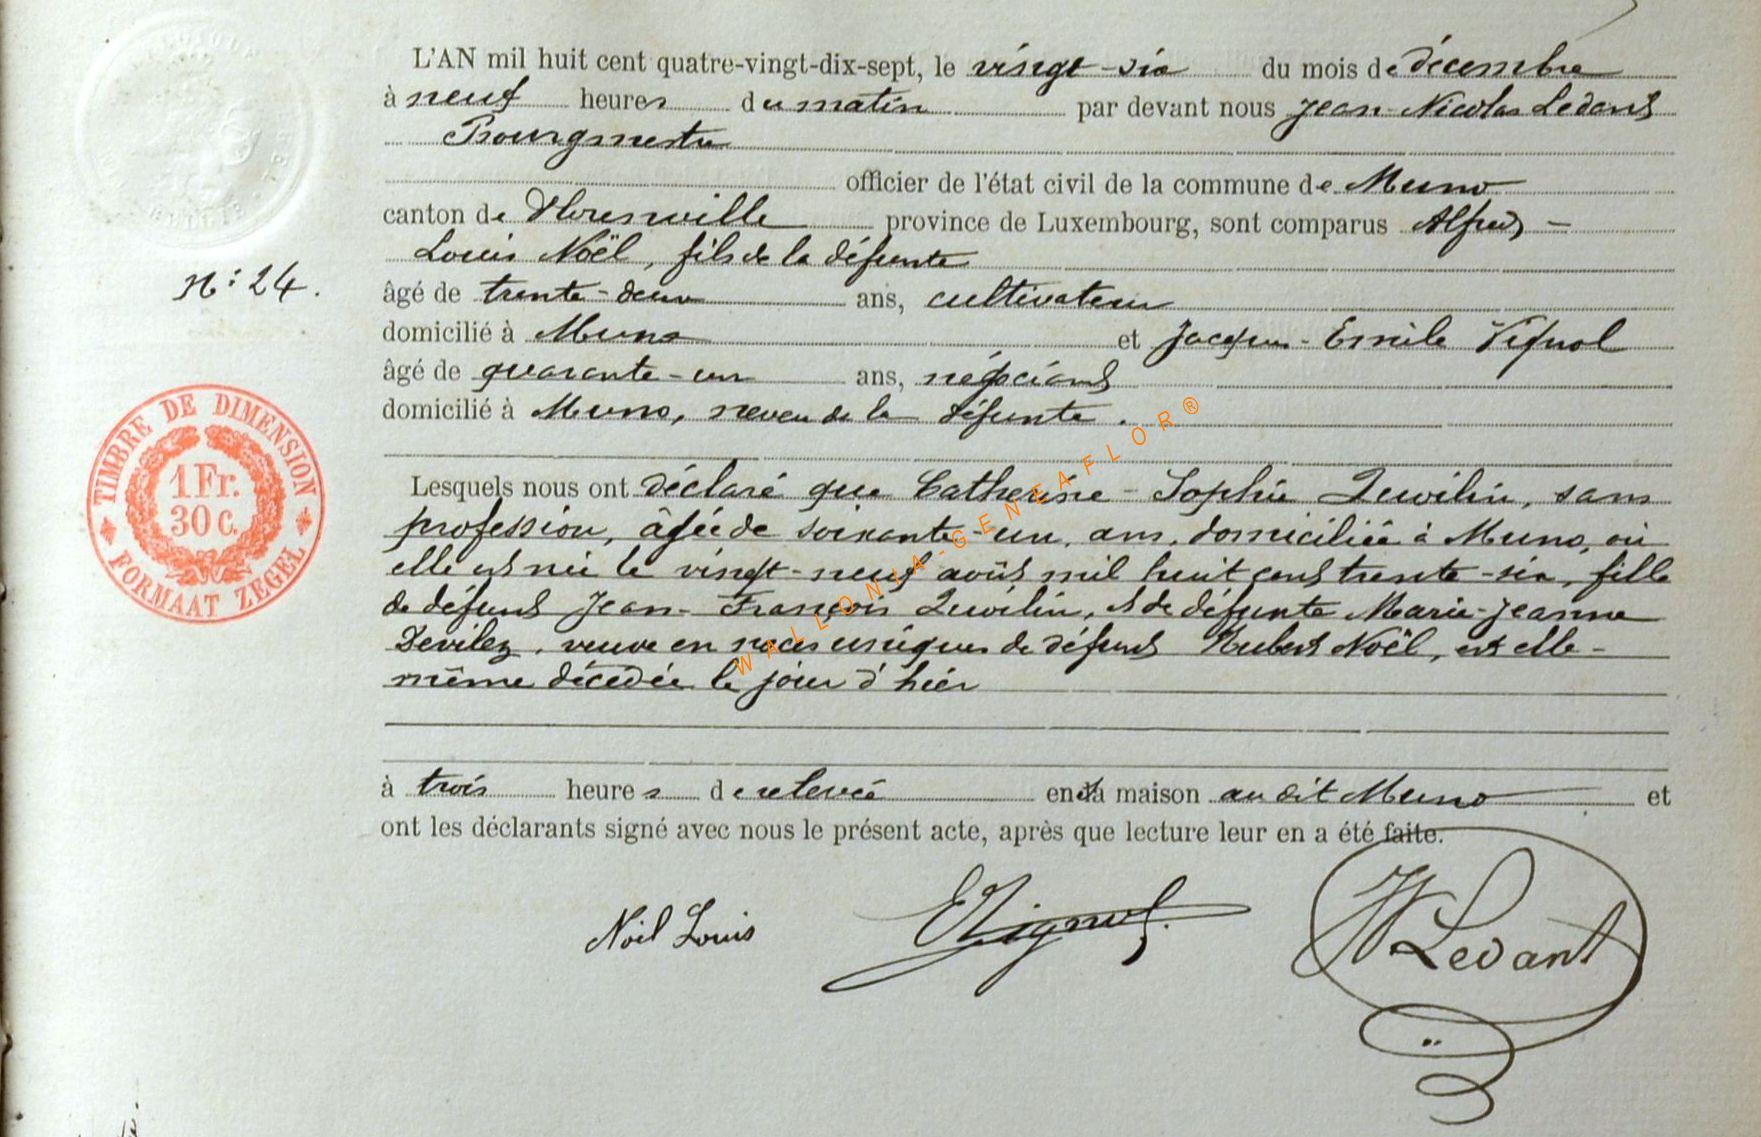 L'AN mil huit cent quatre-vingt-dix-sept, le vingt-six du mois de décembre
à neuf heures du matin par devant nous Jean-Nicolas Ledant
Bourgmestre
officier de l'état civil de la commune de Muno
canton de Florenville province de Luxembourg, sont comparus Alfred-
Louis Noël, fils de la défunte
N° 24.
âgé de trente-deux ans, cultivateur
domicilié à Muno et Jacques-Emile Vignol
âgé de quarante-un ans, négociant
domicilié à Muno, neveu de la défunte.
TIMBRE DE DIMENSION
1 Fr.
30 C.
FORMAAT ZEGEL
WALLONIA-GENEAFLOR®
Lesquels nous ont déclaré que Catherine-Sophie Quoilin, sans
profession, âgée de soixante-un ans, domiciliée à Muno, où
elle est née le vingt-neuf août mil huit cent trente-six, fille
de défunt Jean-François Quoilin, et de défunte Marie-Jeanne
Devilez, veuve en noces uniques de défunt Hubert Noël, est elle-
même décédée le jour d'hier
à trois heures de relevée en sa maison au dit Muno et
ont les déclarants signé avec nous le présent acte, après que lecture leur en a été faite.
Noël Louis
E Vignol
Ledant